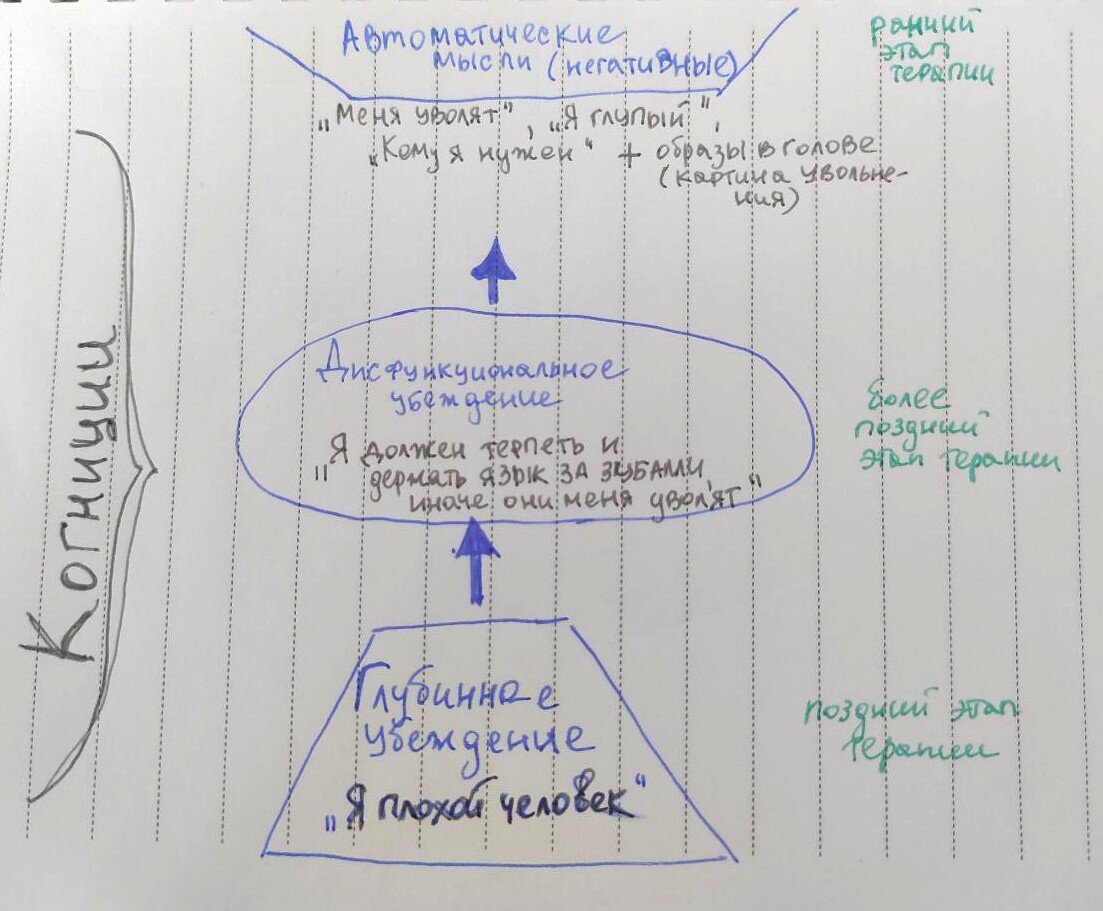 Автоматические
мысли (негативные)
ранний
этап
терапии
„Меня уволят“, „Я глупый“,
„Кому я нужен“ + образы в голове
(картина увольне-
ния)
Когниции
Дисфункциональное
убеждение
„Я должен терпеть и
держать язык за зубами,
иначе они меня уволят“
более
поздний
этап терапии
Глубинное
убеждение
„Я плохой человек“
поздний этап
терапии